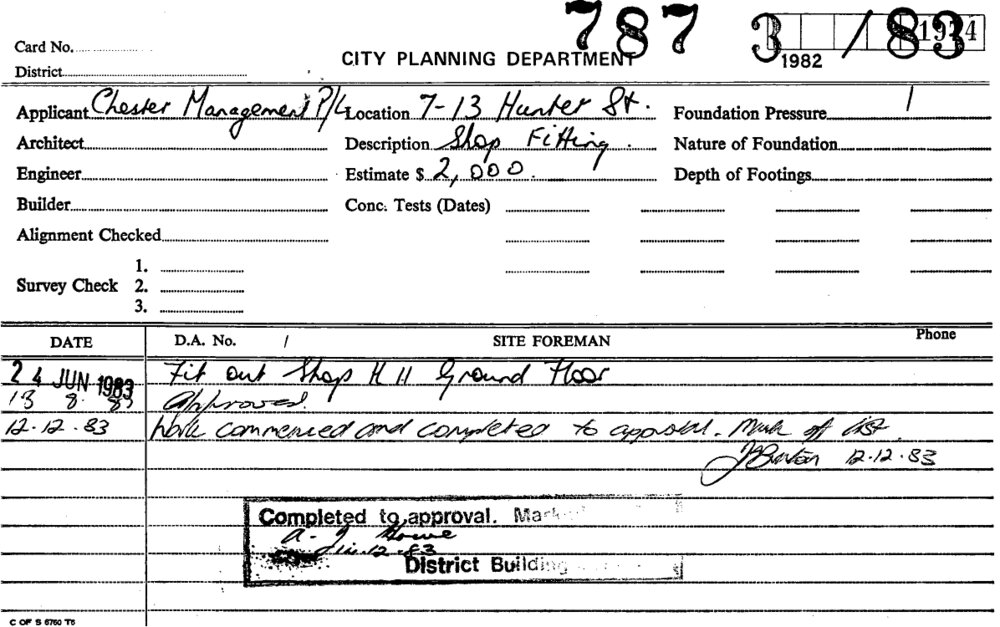 787 3 / 83
1974
1982
Card No.
CITY PLANNING DEPARTMENT
District
Applicant Chester Management P/L Location 7-13 Hunter St. Foundation Pressure /
Architect Description Shop Fitting. Nature of Foundation
Engineer Estimate $ 2,000. Depth of Footings
Builder Conc. Tests (Dates)
Alignment Checked
1.
Survey Check 2.
3.
DATE D.A. No. / SITE FOREMAN Phone
24 JUN 1983 Fit out Shop H 11 Ground Floor
13 8. 83 Approved.
12.12.83 Work commenced and completed to approval. Mark off list.
12.12.83
Completed to approval. Mark
A. J. Howe
12.83
District Building
C OF S 6760 T6